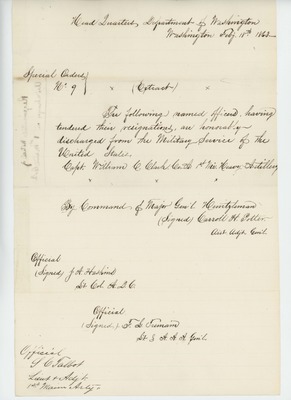 Head Quarters, Department of Washington
Washington Feby. 18th 1863
Special Orders
No. 9 x (Extract) x
The following named officers, having
tendered their resignations, are honorably
discharged from the Military Service of the
United States.
Capt. William C. Clark Co. 1st Me. Heavy Artillery
By Command of Major Genl. Heintzleman
(Signed) Carroll H. Potter
Asst. Adjt. Genl.
Official
(Signed) J. A. Haskins
Lt Col. A.D.C.
Official
(Signed) F. L. Tremain
Lt & A.A.A. Genl.
Official
Talbot
Lieut & Adjt
1st Maine Arty